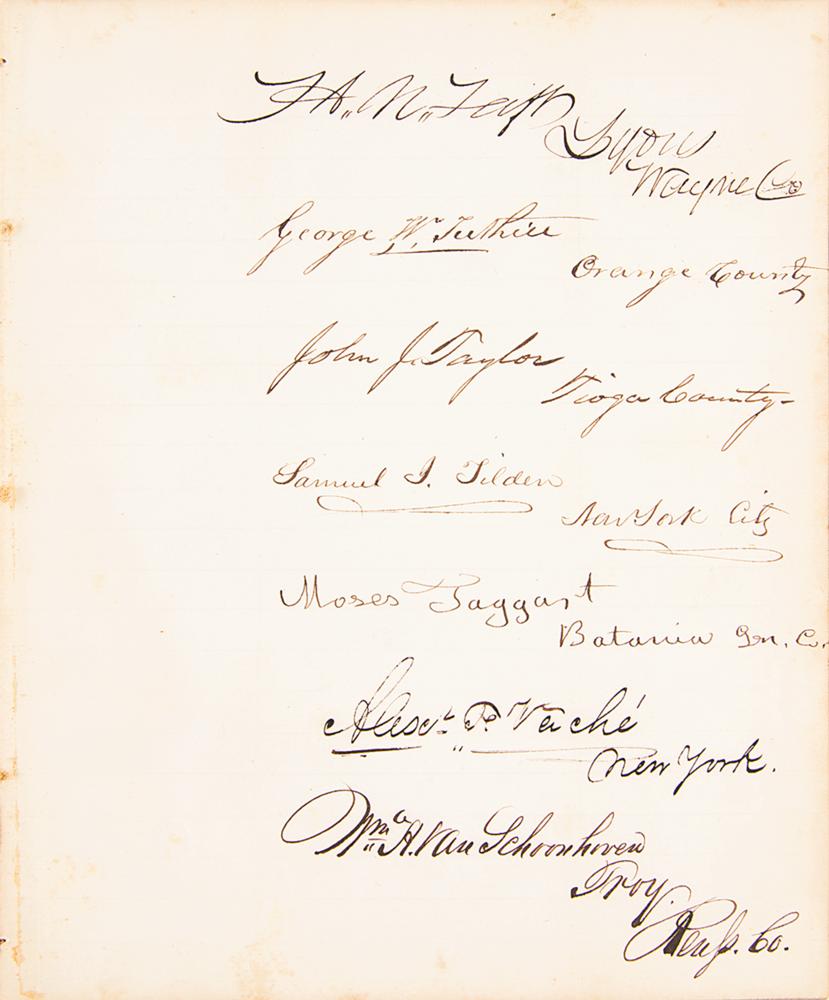 H. N. Taft
Lyons
Wayne Co
George W. Tuthill
Orange County
John J. Taylor
Tioga County-
Samuel J. Tilden
New York City
Moses Taggart
Batavia Gen. Co.
Alexr. F. Vaché
New York.
Wm. A. Van Schoonhoven
Troy.
Renss. Co.